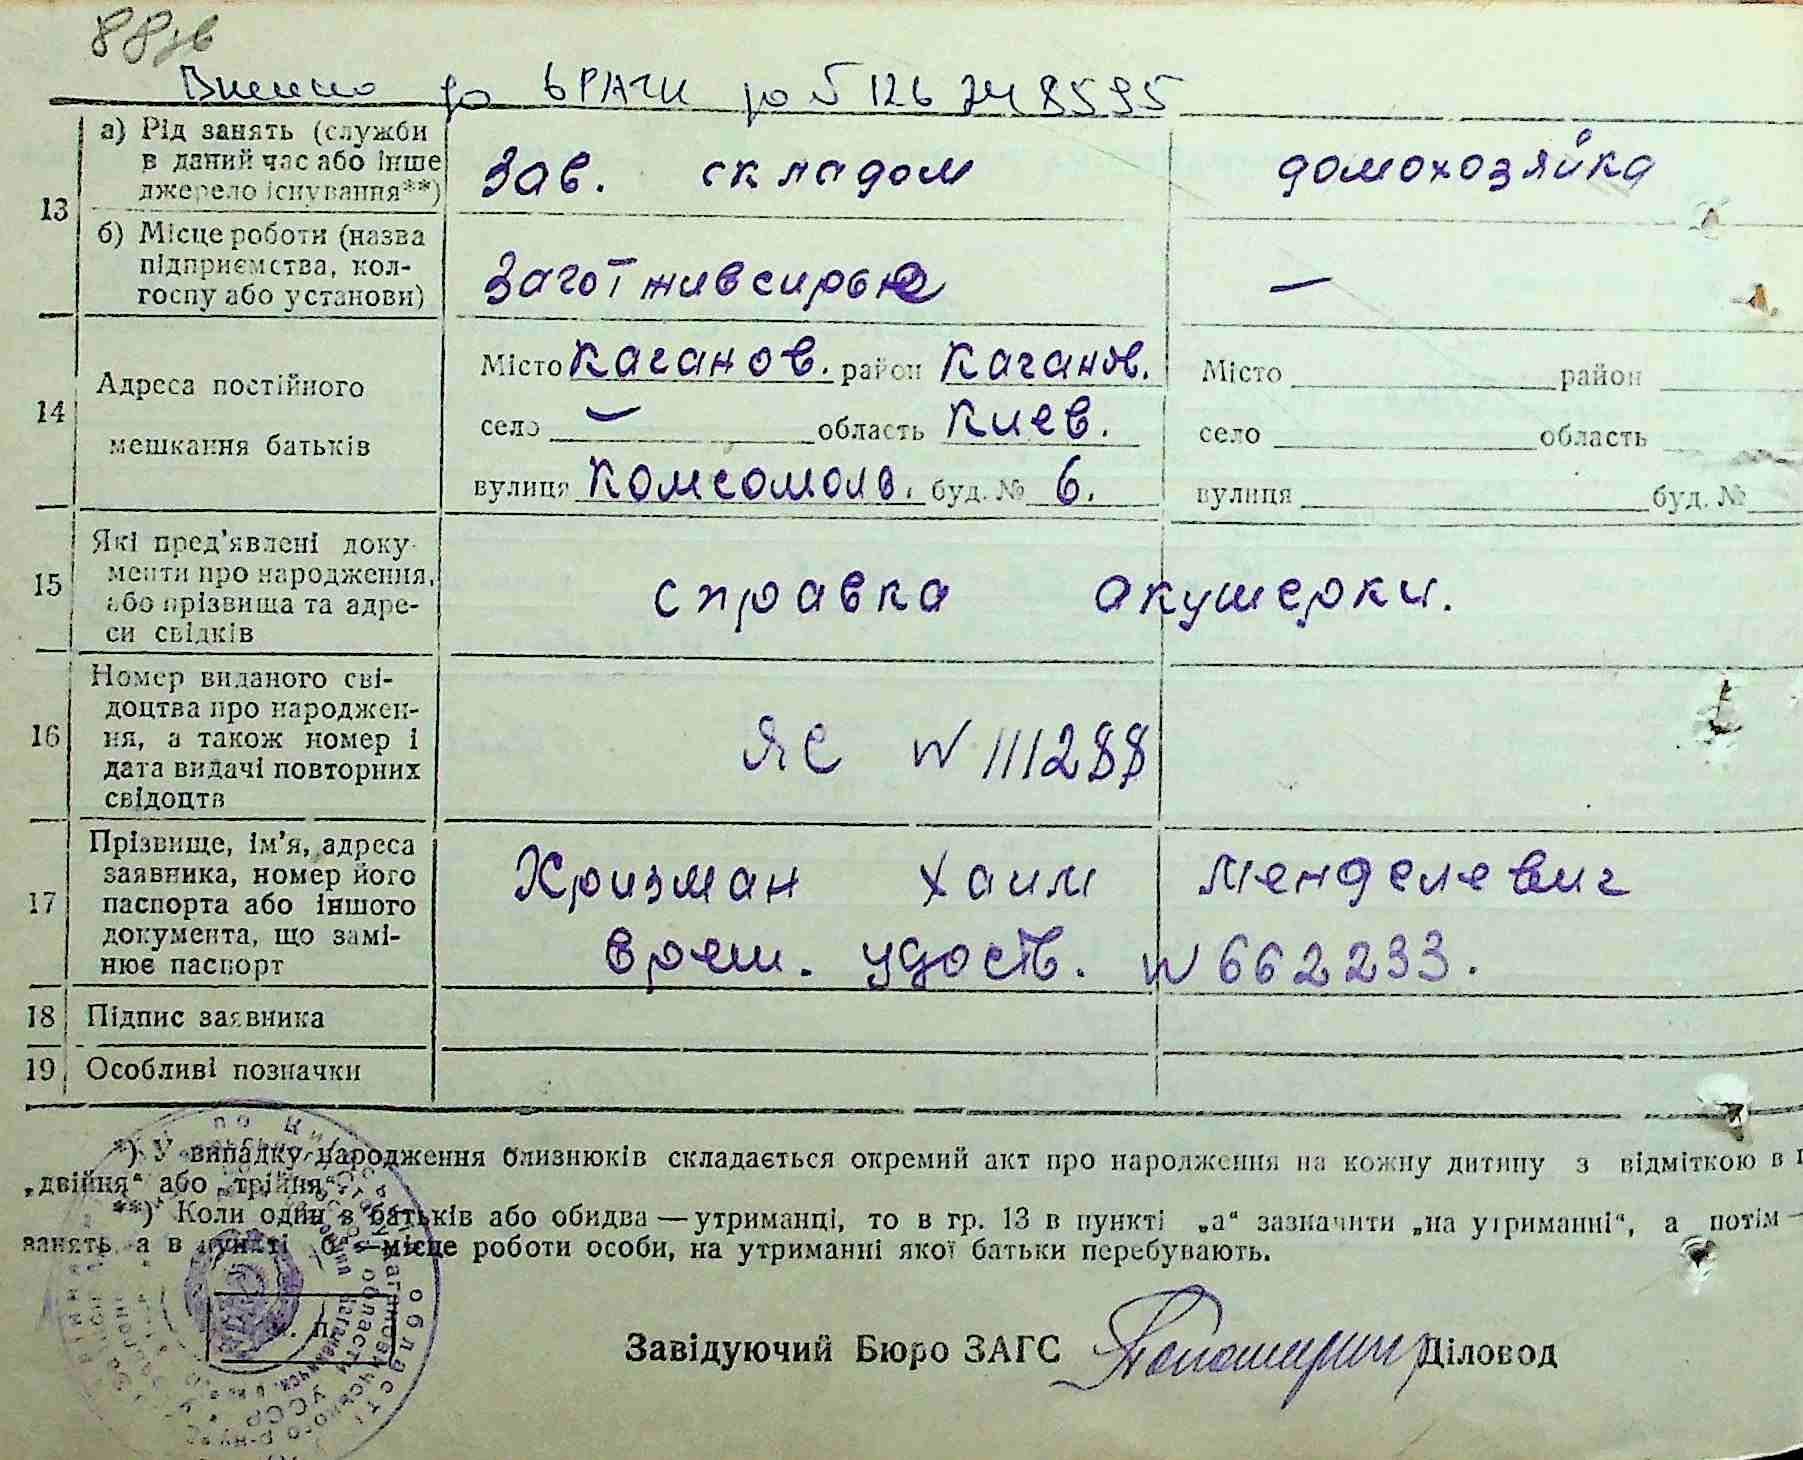 88зв
Внесено до ДРАЦС
13
а) Рід занять (служби в даний час або інше джерело існування**)
Зав. складом
домохозяйка
б) Місце роботи (назва підприємства, колгоспу або установи)
Заготживсирье
—
14
Адреса постійного мешкання батьків
Місто Каганов. район Каганов.
село — область Киев.
вулиця Комсомоль. буд. № 6.
Місто район
село область
вулиця буд. №
15
Які пред'явлені доку-
менти про народження,
або прізвища та адре-
си свідків
справка акушерки.
16
Номер виданого сві-
доцтва про народжен-
ня, а також номер і
дата видачі повторних
свідоцтв
ЯС № 111288
17
Прізвище, ім'я, адреса
заявника, номер його
паспорта або іншого
документа, що замі-
нює паспорт
Кризман Хаим Менделевич
врем. удост. № 662233.
18 Підпис заявника
19 Особливі позначки
*) У випадку народження близнюків складається окремий акт про народження на кожну дитину з відміткою в
„двійня“ або „трійня“.
**) Коли один з батьків або обидва — утриманці, то в гр. 13 в пункті „а“ зазначити „на утриманні“, а потім —
занять, а в пункті „б“ — місце роботи особи, на утриманні якої батьки перебувають.
м. п.
Завідуючий Бюро ЗАГС Діловод